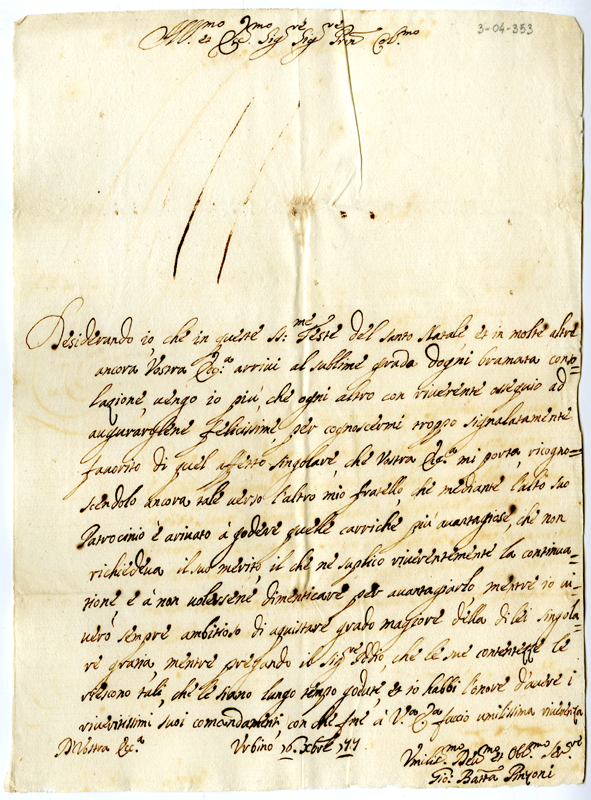 3-04-353
Ill.mo et Ecc. Sig.re Sig.re Prin Col.mo
Desiderando io che in queste St.me Feste del Santo Natale, et in molte altre
ancora, Vostra Ecc.a arrivi al sublime grado d'ogni bramata conso=
lazione, vengo io più che ogni altro con riverente ossequio ad
augurargliene felicissime, per cognoscermi troppo signalatamente
favorito di quel affetto singolare, che Vostra Ecc.a mi porta, ricogno=
scendolo ancora tale verso l'altro mio fratello che mediante l'alto suo
Patrocinio è arivato à godere quelle carriche più avantagiose, che non
richiedeva il suo merito, il che ne suplico riverentemente la continua=
zione e à non volersene dimenticare per avantagiarlo mentre io vi=
verò sempre ambitioso di aquistare grado magiore della di lei singola=
re grazia, mentre pregando il Sig.re Iddio, che le sue contentezze le
riescono tali, che le siano lungo tempo godute et io habbi l'onore d'avere i
riveritissimi suoi comandamenti, con che fine à V.ra Ecc.a faccio umilissima riverenza
D Vostra Ecc.a
Urbino 16. Xbre
Umiliss.mo Dev.mo et Obl.mo Ser.re
Gio: Batta